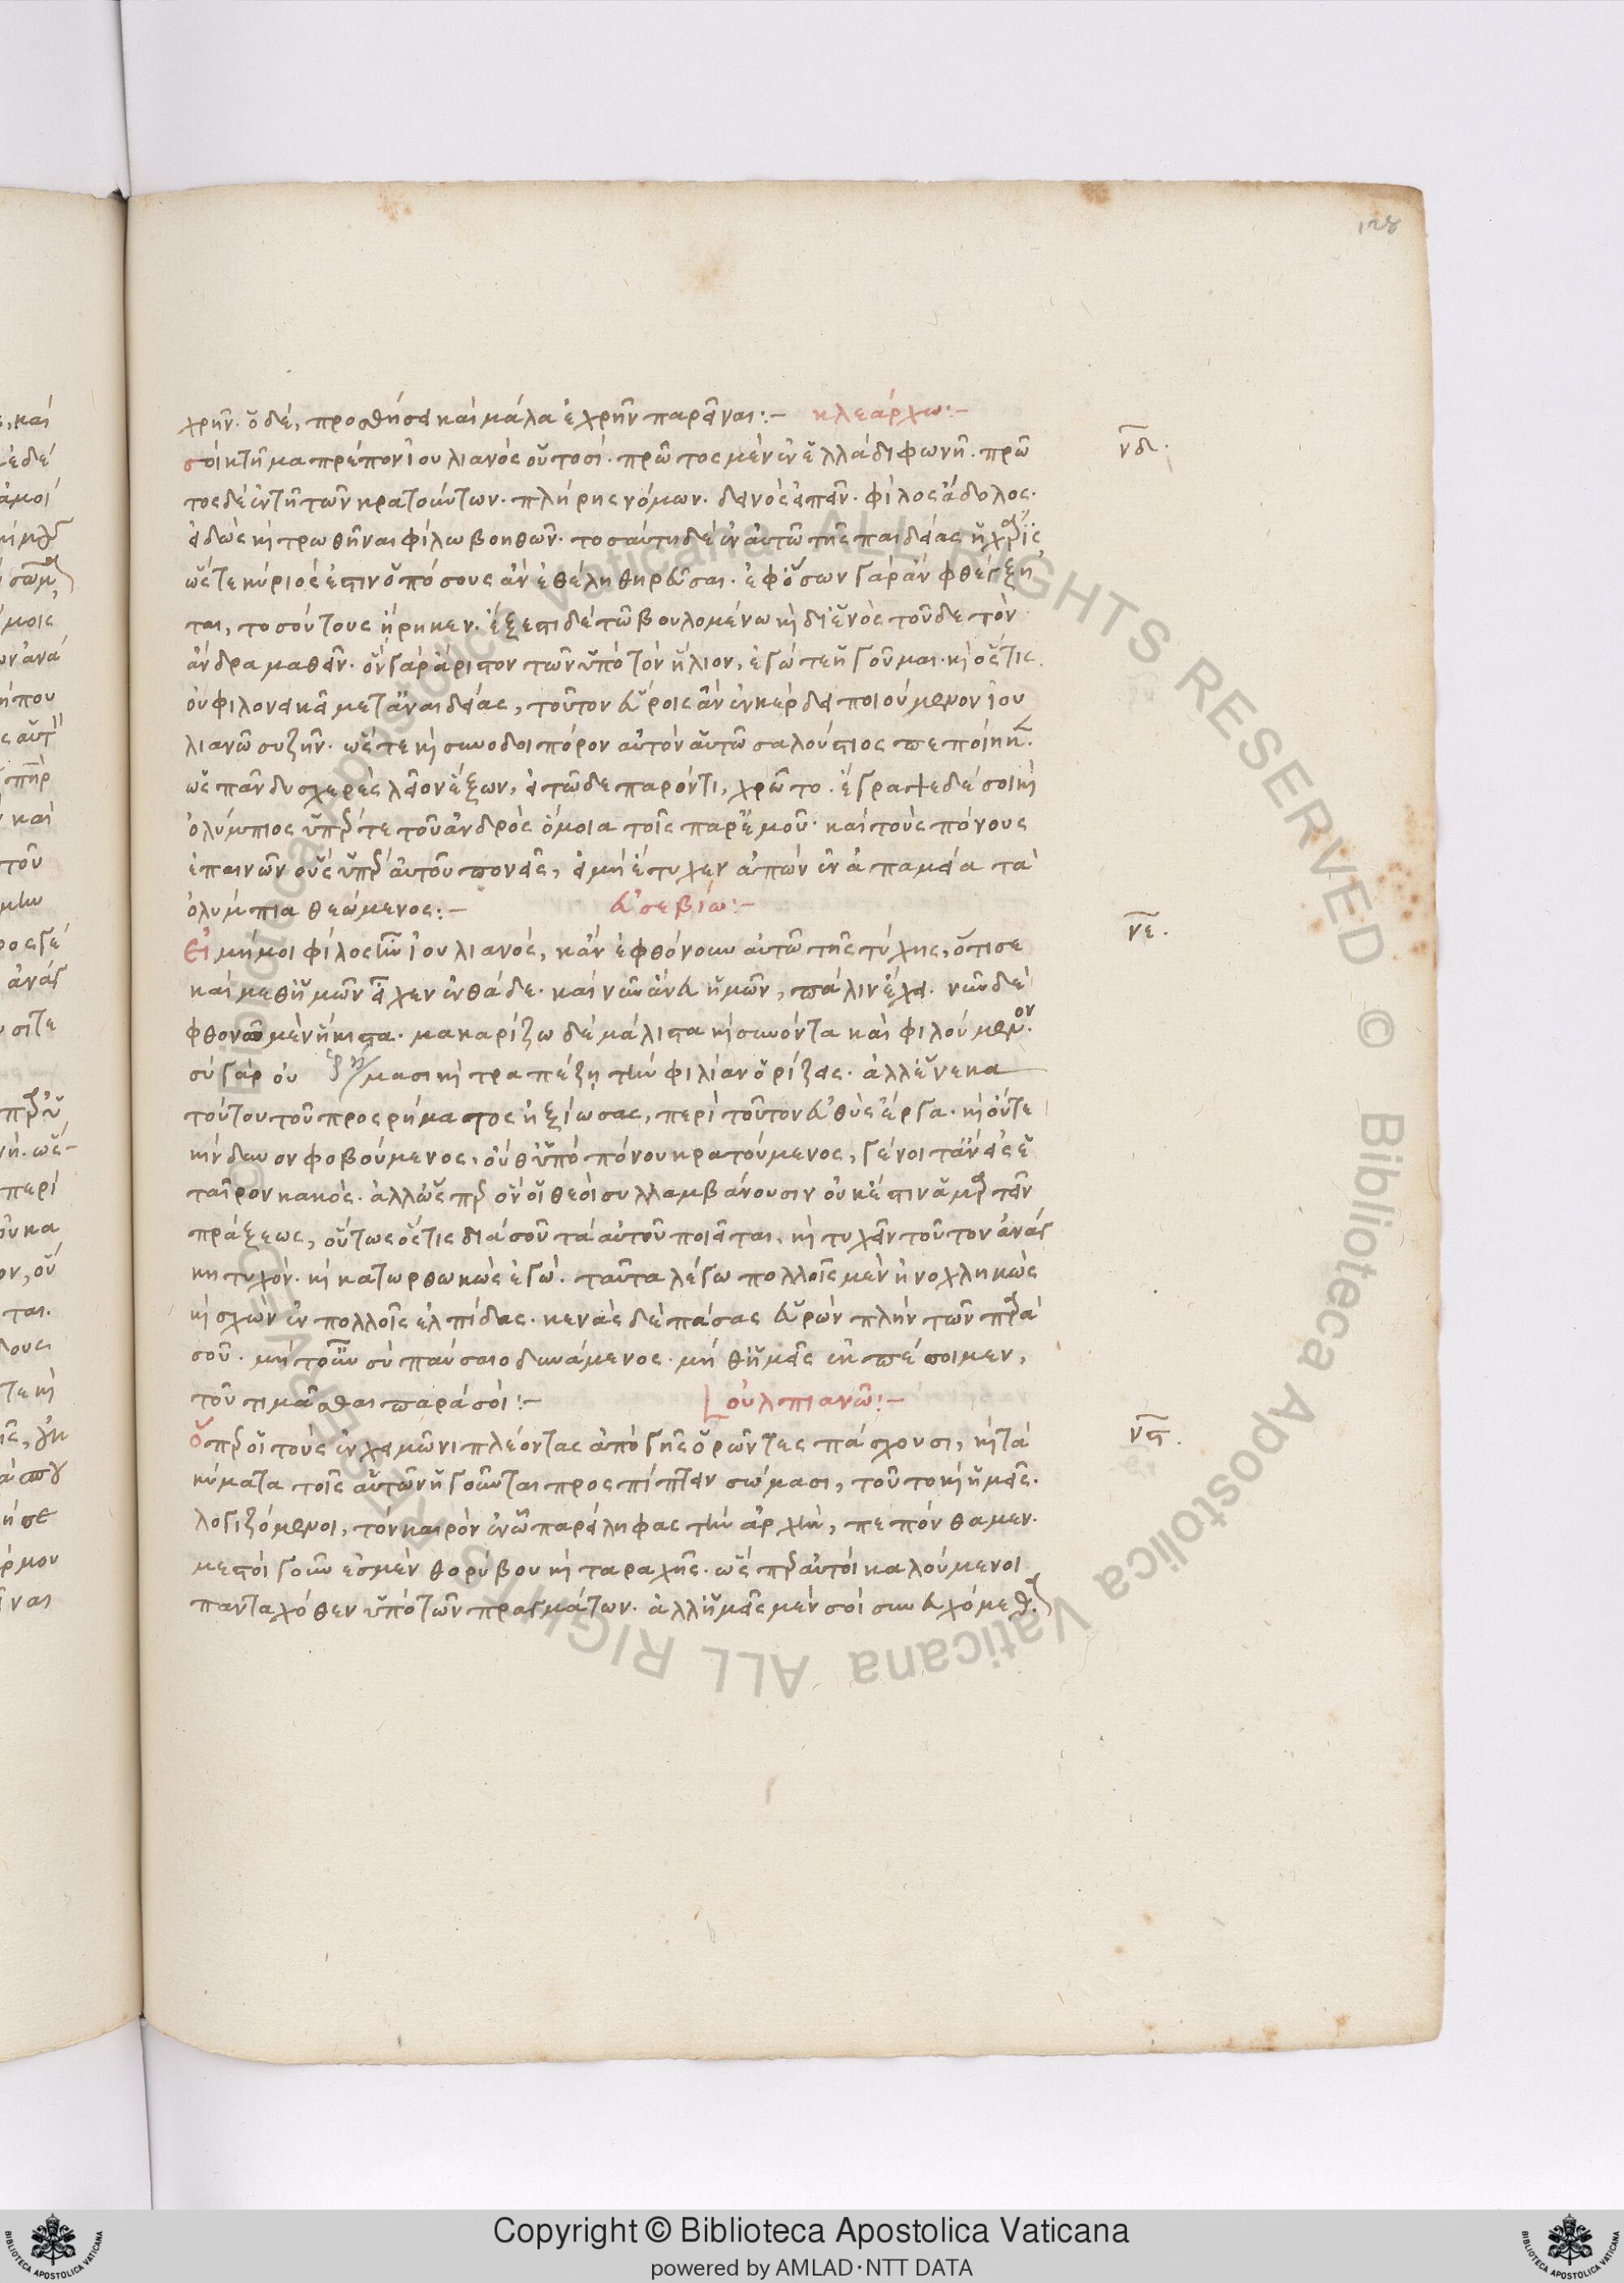 128
χρῆν. ὁ δέ, προσθήσει καὶ μάλα ἐχρῆν παρεῖναι:– κλεάρχω:–
σοὶ κτῆμα πρέπον ἰουλιανὸς οὑτοσί. πρῶτος μὲν ἐν ἑλλάδι φωνῆ. πρῶ νδ.
τος δὲ ἐν τῆ τῶν κρατούντων. πλήρης νόμων. δεινὸς εἰπεῖν. φίλος ἄδολος.
εἰδὼς κὶ τρωθῆναι φίλω βοηθῶν. τοσαύτη δὲ ἐν αὐτῶ τῆς παιδείας ἡ χάρις
ὥστε κύριός ἐστιν ὁπόσους ἂν ἐθέλη θηρεῦσαι. ἐφ' ὅσων γὰρ ἂν φθέγξη
ται, τοσούτους ἥρηκεν. ἔξεστι δὲ τῶ βουλομένω κὶ δι' ἑνὸς τοῦδε τὸν
ἄνδρα μαθεῖν. ὃν γὰρ ἄριστον τῶν ὑπὸ τὸν ἥλιον, ἐγώ τε ἡγοῦμαι. κὶ ὅστις
οὐ φιλονεικεῖ μετ' ἀναιδείας, τοῦτον εὕροις ἂν ἐν κέρδει ποιούμενον ἰου
λιανῶ συζῆν. ὥστε κὶ συνοδοιπόρον αὐτὸν αὑτῶ σαλούστιος πεποίητ.
ὡς πᾶν δυσχερὲς λεῖον ἕξων, εἰ τῶδε παρόντι, χρῶτο. ἔγραψε δέ σοι κὶ
ὀλύμπιος ὑπέρ τε τοῦ ἀνδρὸς ὅμοια τοῖς παρ' ἐμοῦ. καὶ τοὺς πόνους
ἐπαινῶν οὓς ὑπὲρ αὐτοῦ πονεῖς, εἰ μὴ ἔτυχεν ἀπὼν ἐν ἀπαμεία τὰ
ὀλύμπια θεώμενος:– εὐσεβίω:–
Εἰ μή μοι φίλος ἦν ἰουλιανὸς, κἂν ἐφθόνουν αὐτῶ τῆς τύχης, ὅτι σε νε.
καὶ μεθ' ἡμῶν εἶχεν ἐνθάδε. καὶ νῦν ἄνευ ἡμῶν, πάλιν ἔχει. νῦν δὲ
φθονῶ μὲν ἥκιστα. μακαρίζω δὲ μάλιστα κὶ συνόντα καὶ φιλούμενον.
σὺ γὰρ οὐ ῥήμασι κὶ τραπέζη τὴν φιλίαν ὁρίζεις. ἀλλ' ἕνεκα
τούτου τοῦ προσρήματος ἠξίωσας, περὶ τοῦτον εὐθὺς ἔργα. κὶ οὔτε
κίνδυνον φοβούμενος, οὔθ' ὑπὸ πόνου κρατούμενος, γένοιτ' ἂν εἰς ἑ
ταῖρον κακός. ἀλλ' ὥσπερ ὃν οἱ θεοὶ συλλαμβάνουσιν οὐκ ἔστιν ἁμαρτεῖν
πράξεως, οὕτως ὅστις διὰ σοῦ τὰ αὑτοῦ ποιεῖται, κὶ τυχεῖν τοῦτον ἀνάγ
κη τυχόν. κὶ κατωρθωκὼς ἐγώ. ταῦτα λέγω πολλοῖς μὲν ἠνοχληκὼς
κὶ σχὼν ἐν πολλοῖς ἐλπίδας. κενὰς δὲ πάσας εὑρὼν πλὴν τῶν παρὰ
σοῦ. μὴ τοίνυν σὺ παύσαιο δυνάμενος. μήθ' ἡμεῖς ἐκπέσοιμεν,
τοῦ τιμᾶσθαι παρὰ σοί:– οὐλπιανῶ:–
Ὅπερ οἱ τοὺς ἐν χειμῶνι πλέοντας ἀπὸ γῆς ὁρῶντες πάσχουσι, κὶ τὰ νϛ.
κύματα τοῖς αὑτῶν ἡγοῦνται προσπίπτειν σώμασι, τοῦτο κὶ ἡμεῖς.
λογιζόμενοι, τὸν καιρὸν ἐν ὧ παρείληφας τὴν ἀρχὴν, πεπόνθαμεν.
μεστοὶ γοῦν ἐσμὲν θορύβου κὶ ταραχῆς. ὥσπερ αὐτοὶ καλούμενοι
πανταχόθεν ὑπὸ τῶν πραγμάτων. ἀλλ' ἡμεῖς μέν σοι συνευχόμεθα.
Copyright © Biblioteca Apostolica Vaticana
powered by AMLAD·NTT DATA